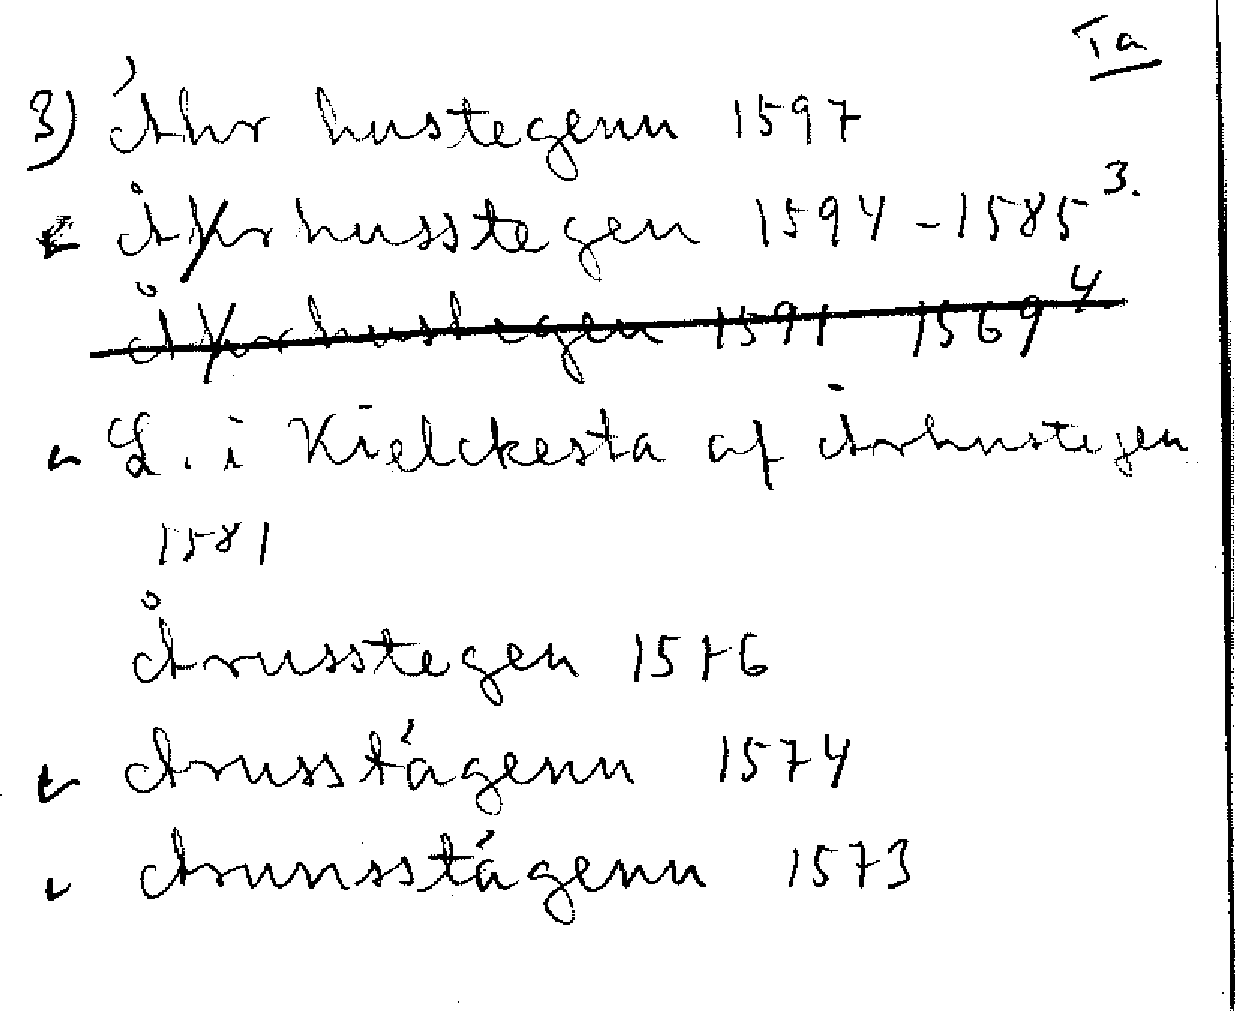 Ta
3) Áhr hustegenn 1597
Åhrhusstegen 1594-1585 3.
Åhrhustegen 1591 1569 4
L. i Kielckesta af Arhustegen
1581
Årusstegen 1576
Arusstágenn 1574
Arunsstágenn 1573